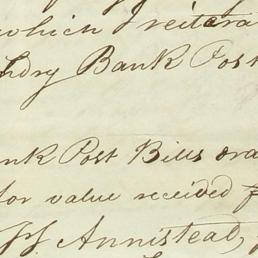 which reitera
ndry Bank Post
nk Post Bills dra
for value received f
Annistead,